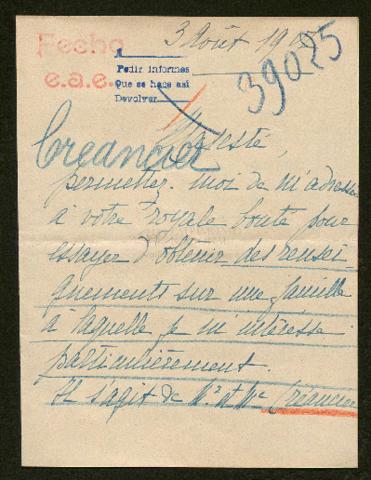 3 Août 19
Fecho
e.a.e.
Pedir informes
Que se hace así
Devolver
39025
Creancier
Majesté,
permettez-moi de m'adresser
à votre royale bonté pour
essayer d'obtenir des rensei
gnements sur une famille
à laquelle je m'intéresse
particulièrement.
Il s'agit de Mr et Me Créancier